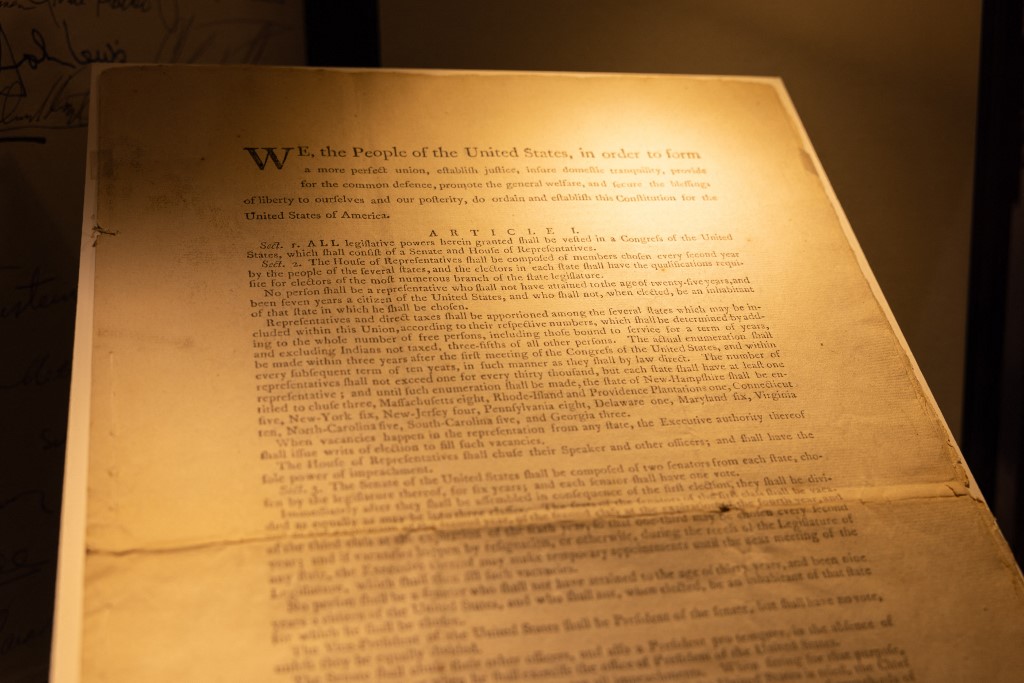 WE, the People of the United States, in order to form
a more perfect union, eſtabliſh juſtice, inſure domeſtic tranquility, provide
for the common defence, promote the general welfare, and ſecure the bleſſings
of liberty to ourſelves and our poſterity, do ordain and eſtabliſh this Conſtitution for the
United States of America.
ARTICLE I.
Sect. 1. ALL legiſlative powers herein granted ſhall be veſted in a Congreſs of the United
States, which ſhall conſiſt of a Senate and Houſe of Repreſentatives.
Sect. 2. The Houſe of Repreſentatives ſhall be compoſed of members choſen every ſecond year
by the people of the ſeveral ſtates, and the electors in each ſtate ſhall have the qualifications requi-
ſite for electors of the moſt numerous branch of the ſtate legiſlature.
No perſon ſhall be a repreſentative who ſhall not have attained to the age of twenty-five years, and
been ſeven years a citizen of the United States, and who ſhall not, when elected, be an inhabitant
of that ſtate in which he ſhall be choſen.
Repreſentatives and direct taxes ſhall be apportioned among the ſeveral ſtates which may be in-
cluded within this Union, according to their reſpective numbers, which ſhall be determined by add-
ing to the whole number of free perſons, including thoſe bound to ſervice for a term of years,
and excluding Indians not taxed, three-fifths of all other perſons. The actual enumeration ſhall
be made within three years after the firſt meeting of the Congreſs of the United States, and within
every ſubſequent term of ten years, in ſuch manner as they ſhall by law direct. The number of
repreſentatives ſhall not exceed one for every thirty thouſand, but each ſtate ſhall have at leaſt one
repreſentative; and until ſuch enumeration ſhall be made, the ſtate of New-Hampſhire ſhall be en-
titled to chuſe three, Maſſachuſetts eight, Rhode-Iſland and Providence Plantations one, Connecticut
five, New-York ſix, New-Jerſey four, Pennſylvania eight, Delaware one, Maryland ſix, Virginia
ten, North-Carolina five, South-Carolina five, and Georgia three.
When vacancies happen in the repreſentation from any ſtate, the Executive authority thereof
ſhall iſſue writs of election to fill ſuch vacancies.
The Houſe of Repreſentatives ſhall chuſe their Speaker and other officers; and ſhall have the
ſole power of impeachment.
Sect. 3. The Senate of the United States ſhall be compoſed of two ſenators from each ſtate, cho-
ſen by the legiſlature thereof, for ſix years; and each ſenator ſhall have one vote.
Immediately after they ſhall be aſſembled in conſequence of the firſt election, they ſhall be divi-
ded as equally as may be
by reſignation, or otherwiſe, during the receſs of the Legiſlature of
may make temporary appointments until the next meeting of the
Legiſlature, which ſhall then fill ſuch vacancies.
No perſon ſhall be a ſenator who ſhall not have attained to the age of thirty years, and been nine
years a citizen of the United States, and who ſhall not, when elected, be an inhabitant of that ſtate
for which he ſhall be choſen.
The Vice-Preſident of the United States ſhall be Preſident of the ſenate, but ſhall have no vote,
unleſs they be equally divided.
The Senate ſhall chuſe their other officers, and alſo a Preſident pro tempore, in the abſence of
the office of Preſident of the United States.